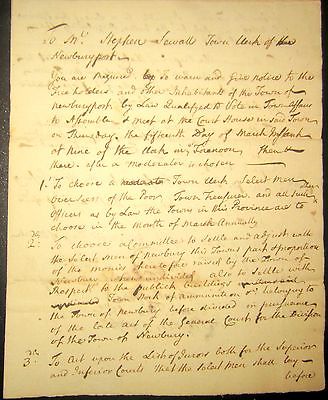 To Mr. Stephen Sewall Town Clerk of
Newburyport.
You are required to warn and give notice to the
Freeholders and other Inhabitants of the Town of
newburyport by Law Qualified to Vote in Town Affairs
to Assemble & meet at the Court House in said Town
on Thursday, the fifteenth Day of March Instant
at nine of the Clock in Forenoon Then &
there after a moderator is chosen
1. To choose a Town Clerk Select men
overseers of the Poor Town Treasurer and all such
officers as by Law the Towns in this Province are to
choose in the Month of March Annually
2. To choose a Committee to Settle and adjust with
the Select Men of Newbury this Towns part & proportion
of the monies heretofore raised by the Town of
Newbury also to Settle with
Respect to the publick Buildings
Town Stock of ammunition belonging to
the Town of Newbury before divided in pursuance
of the Late act of the General Court for the Division
of the Town of Newbury.
3. To Act upon the List of Jurors both for the Superior
and Inferior Courts that the Select men shall lay
before